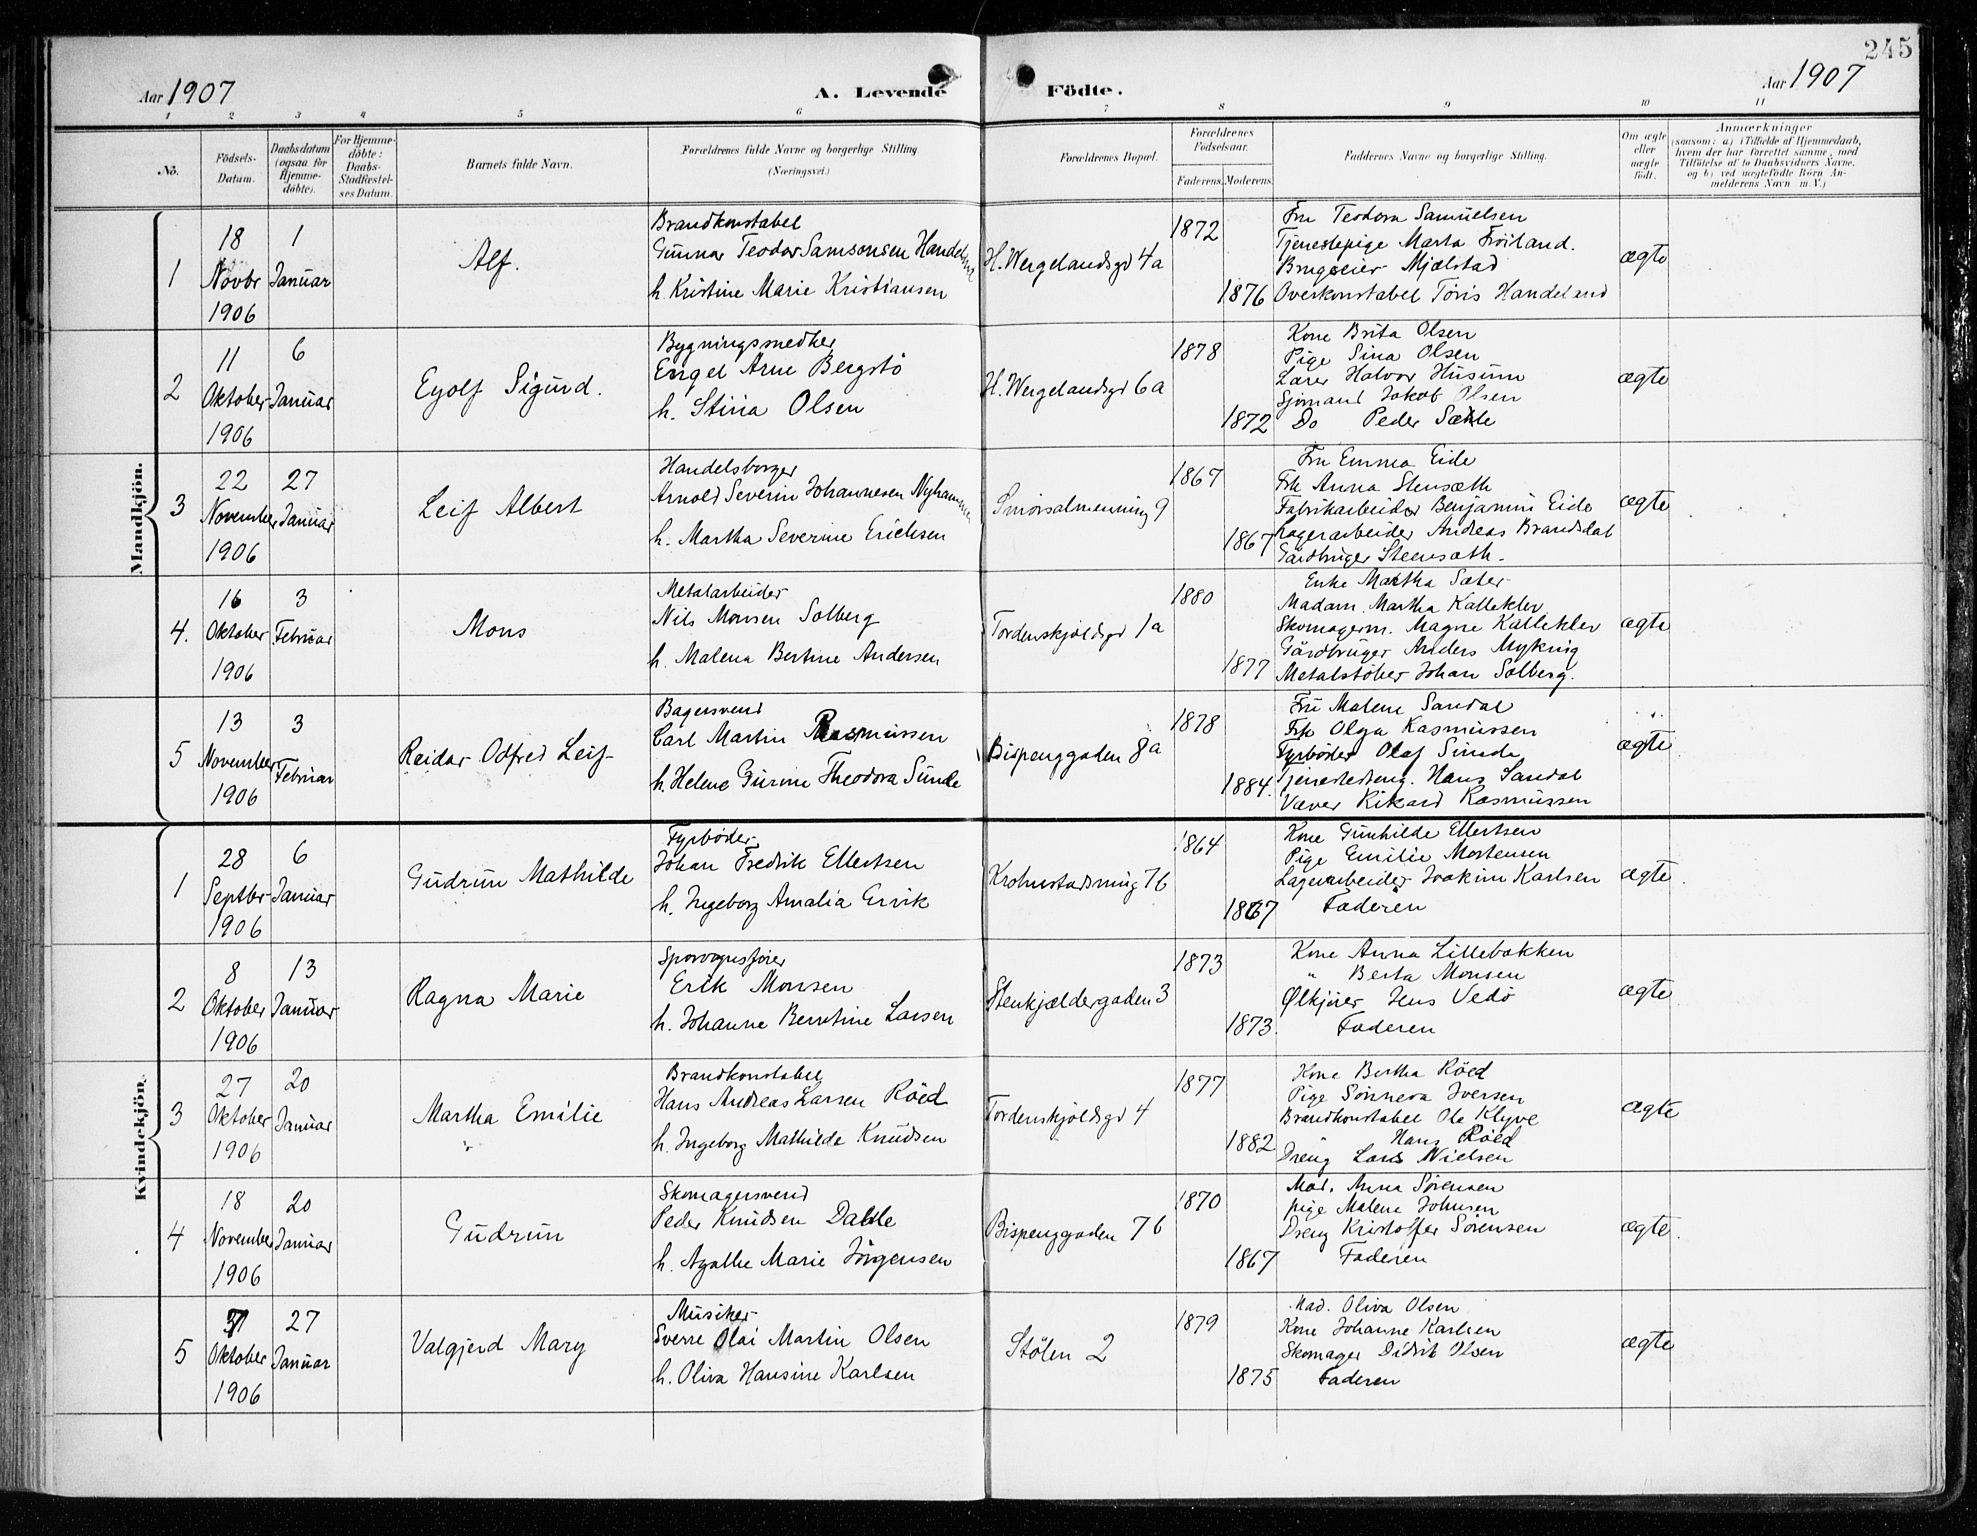 245
Aar 1907
A. Levende
Födte.
Aar 1907
1 2 3 4 5 6 7 8 9 10 11
No.
Födsels-Datum.
Daabsdatum (ogsaa for Hjemme-döbte).
For Hjemme-döbte: Daabs-Stadfæstel-ses Datum.
Barnets fulde Navn.
Forældrenes fulde Navne og borgerlige Stilling
(Næringsvei.)
Forældrenes Bopæl.
Forældrenes Födselsaar.
Faderens. Moderens.
Faddernes Navne og borgerlige Stilling.
Om ægte eller uægte födt.
Anmærkninger
(saasom: a) i Tilfælde af Hjemmedaab, hvem der har forrettet samme, med Tilföielse af to Daabsvidners Navne, og b) ved uægtefödte Börn An-melderens Navn m. V.)
Mandkjön.
1
18 Novbr 1906
1 Januar
Alf.
Brandkonstabel
Gunnar Teodor Samsonsen Handeland
h. Kristine Marie Kristiansen
H. Wergelandsgd 4a
1872
1876
Fru Teodora Samuelsen
Tjenestepige Marta Fröiland.
Brugseier Mjælstad
Overkonstabel Töris Handeland
ægte
2
11 Oktober 1906
6 Januar
Eyolf Sigurd.
Bygningssmedker
Engel Arne Bergstö
h. Stina Olsen
H. Wergelandsgd 6a
1878
1872
Kone Brita Olsen
Pige Sina Olsen
Lærer Halvor Husum
Sjömand Jakob Olsen
Do Peder Sæhle
ægte
3
22 November 1906
27 Januar
Leif Albert
Handelsborger
Arnold Severin Johannesen Nyhammer
h. Martha Severine Erichsen
Smörsalmenning 9
1867
1867
Fru Emma Eide
Frk Anna Stensæth
Fabrikarbeider Benjamin Eide
Lagerarbeider Andreas Brandsdal
Gårdbruger Steensæth.
ægte
4.
16 Oktober 1906
3 Februar
Mons
Metalarbeider
Nils Monsen Solberg
h. Malena Bertine Andersen
Tordenskjoldsgd 1a
1880
1877
Enke Martha Sæter
Madam. Martha Kallekler
Skomagerm. Magne Kallekler
Gårdbruger Anders Myking
Metalstöber Johan Solberg.
ægte
5
13 November 1906
3 Februar
Reidar Odfred Leif
Bagersvend
Carl Martin Rasmussen
h. Helene Gurine Theodora Sunde
Bispenggaden 8a
1878
1884.
Fru Malene Sandal
Frk Olga Rasmussen
Fyrböder Olaf Sunde
Tjenestedreng. Hans Sandal
Væver Rikard Rasmussen
ægte
Kvindekjön.
1
28 Septbr 1906
6 Januar
Gudrun Mathilde
Fyrböder
Johan Fredrik Ellertsen
h. Ingeborg Amalia Ervik
Krohnstadsming 7b
1864
1867
Kone Gunhilde Ellertsen
Pige Emilie Mortensen
Lagerarbeider Joakim Karlsen
Faderen
ægte
2
8 Oktober 1906
13 Januar
Ragna Marie
Sporvognsförer
Erik Monsen
h. Johanne Berntine Larsen
Stenkjældergaden 3
1873
1873
Kone Anna Lillebakken
" Berta Monsen
Ølkjører Jens Vedö
Faderen
ægte
3
27 Oktober 1906
20 Januar
Martha Emilie
Brandkonstabel
Hans Andreas Larsen Röed
h. Ingeborg Mathilde Knudsen
Tordenskjoldsgd 4
1877
1882
Kone Bertha Röed
Pige Sönneva Iversen
Brandkonstabel Ole Klyve
Hans Röed
Dreng Lars Nielsen
ægte
4
18 November 1906
20 Januar
Gudrun
Skomagersvend
Peder Knudsen Dahle
h. Agathe Marie Jörgensen
Bispenggaden 7b
1870
1867
Mad. Anna Sörensen
pige Malene Johnsen
Dreng Kristoffer Sörensen
Faderen
ægte
5
31 Oktober 1906
27 Januar
Valgjerd Mary
Musiker
Sverre Olai Martin Olsen
h. Oliva Hansine Karlsen
Stölen 2
1879
1875
Mad. Oliva Olsen
Kone Johanne Karlsen
Skomager Didrik Olsen
Faderen
ægte